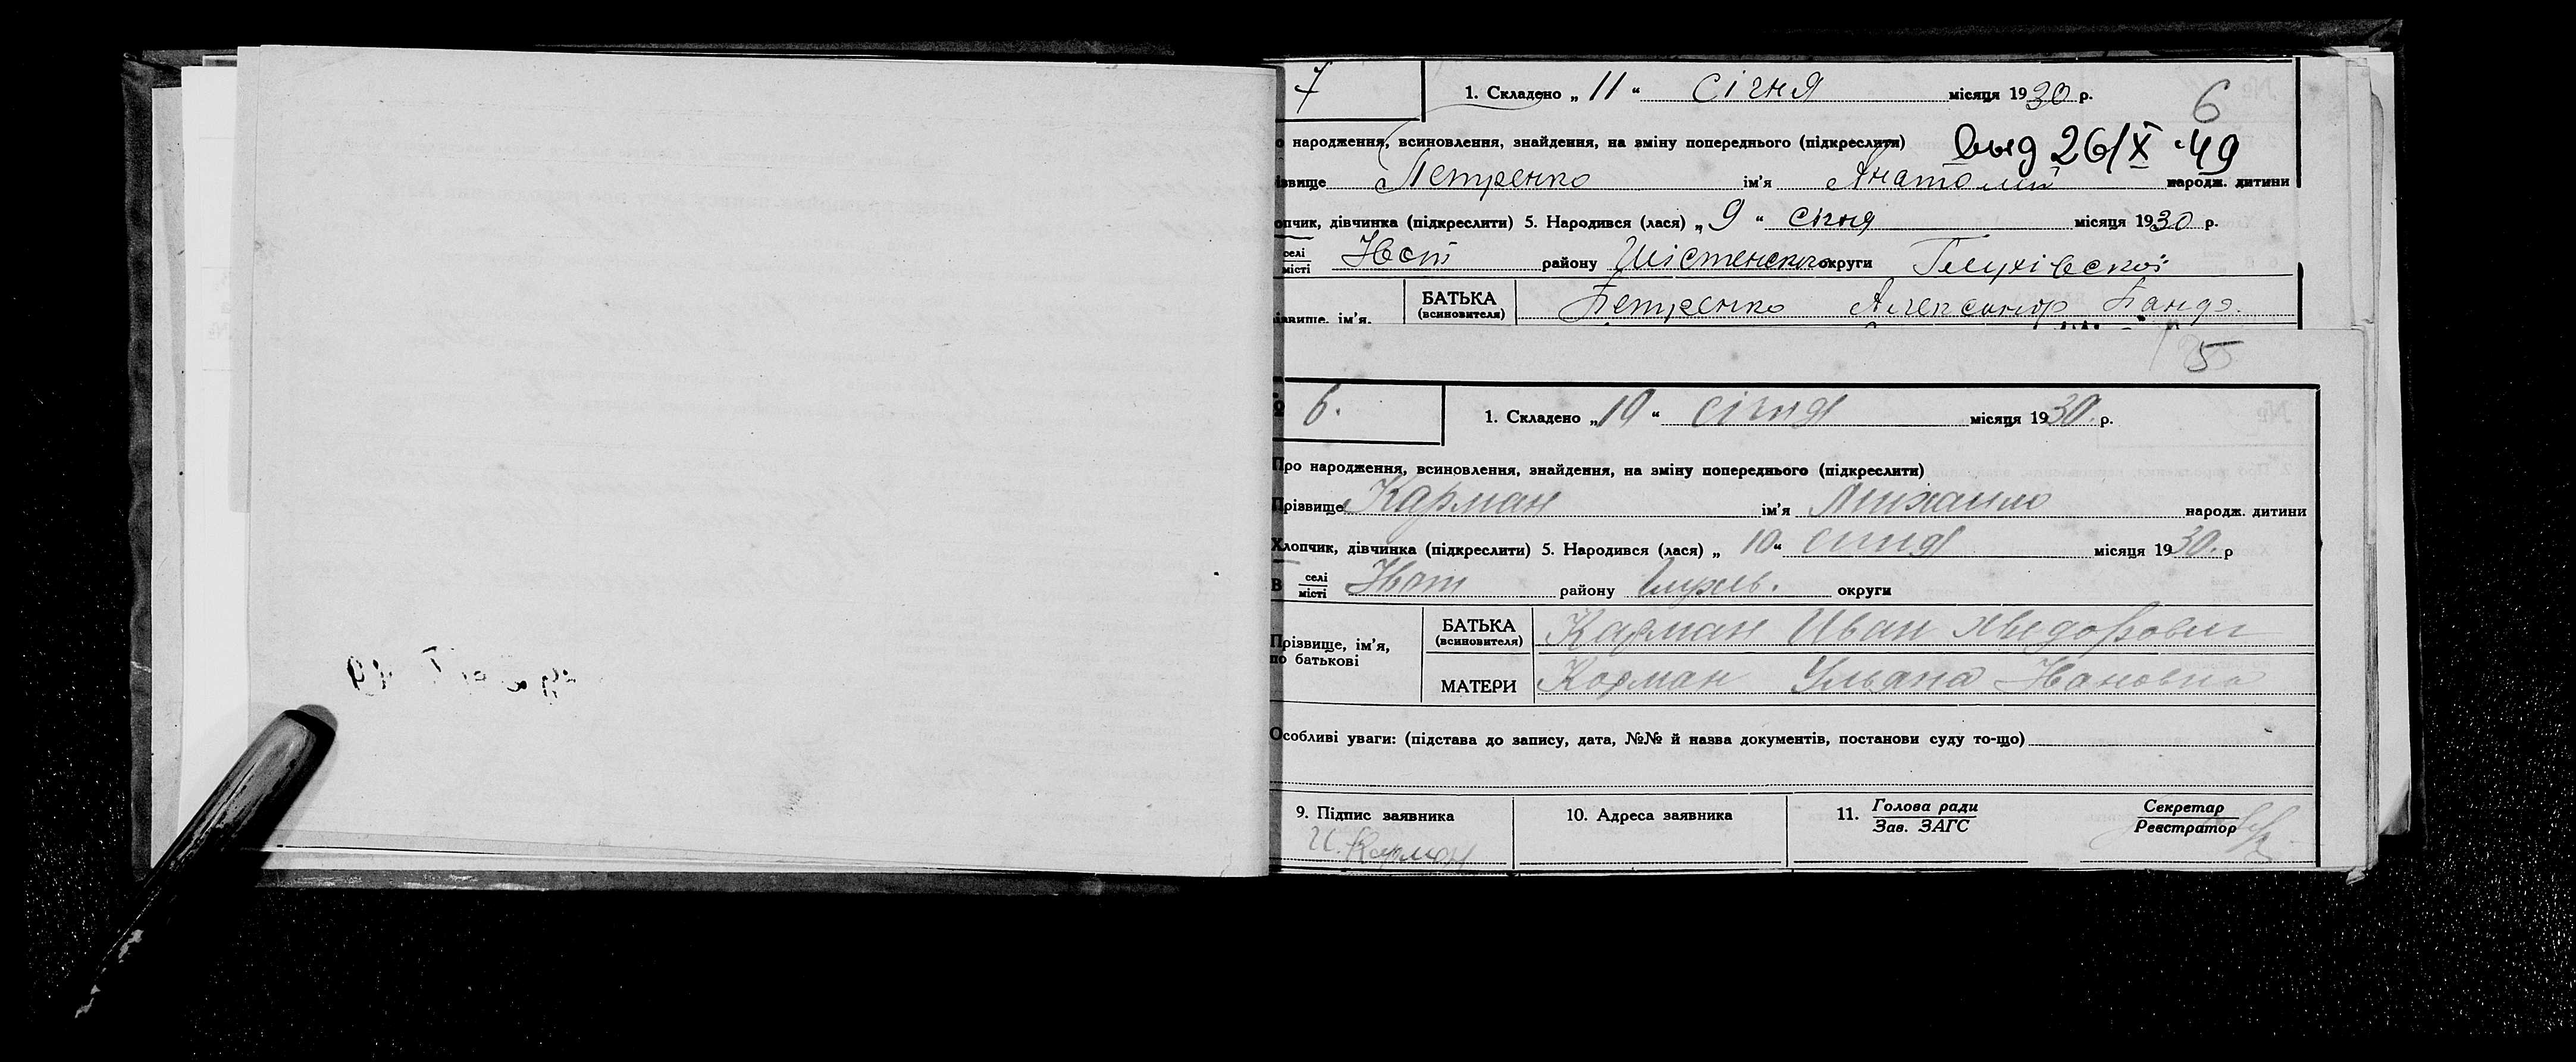 7 1. Складено „ 11 “ січня місяця 1930 р. 6
о народження, всиновлення, знайдення, на зміну попереднього (підкреслити) выд 26/X 49
ізвище Петренко ім'я Анатолій народж. дитини
опчик, дівчинка (підкреслити) 5. Народився (лася) „ 9 “ січня місяця 1930 р.
селі
місті району округи Глухівскої
БАТЬКА Петренко Александр
(всиновителя)
ізвище, ім'я,
5
6. 1. Складено „10“ січня місяця 1930. р.
Про народження, всиновлення, знайдення, на зміну попереднього (підкреслити)
Прізвище Карман ім'я Михаило народж. дитини
Хлопчик, дівчинка (підкреслити) 5. Народився (лася) „ 10“ січня місяця 1930. р
В селі
місті району Глухів. округи
БАТЬКА Карман Иван
(всиновителя)
Прізвище, ім'я,
по батькові
МАТЕРИ Корман Ульяна
Особливі уваги: (підстава до запису, дата, №№ й назва документів, постанови суду то-що)
9. Підпис заявника 10. Адреса заявника 11. Голова ради Секретар
Зав. ЗАГС Реєстратор
И. Карман